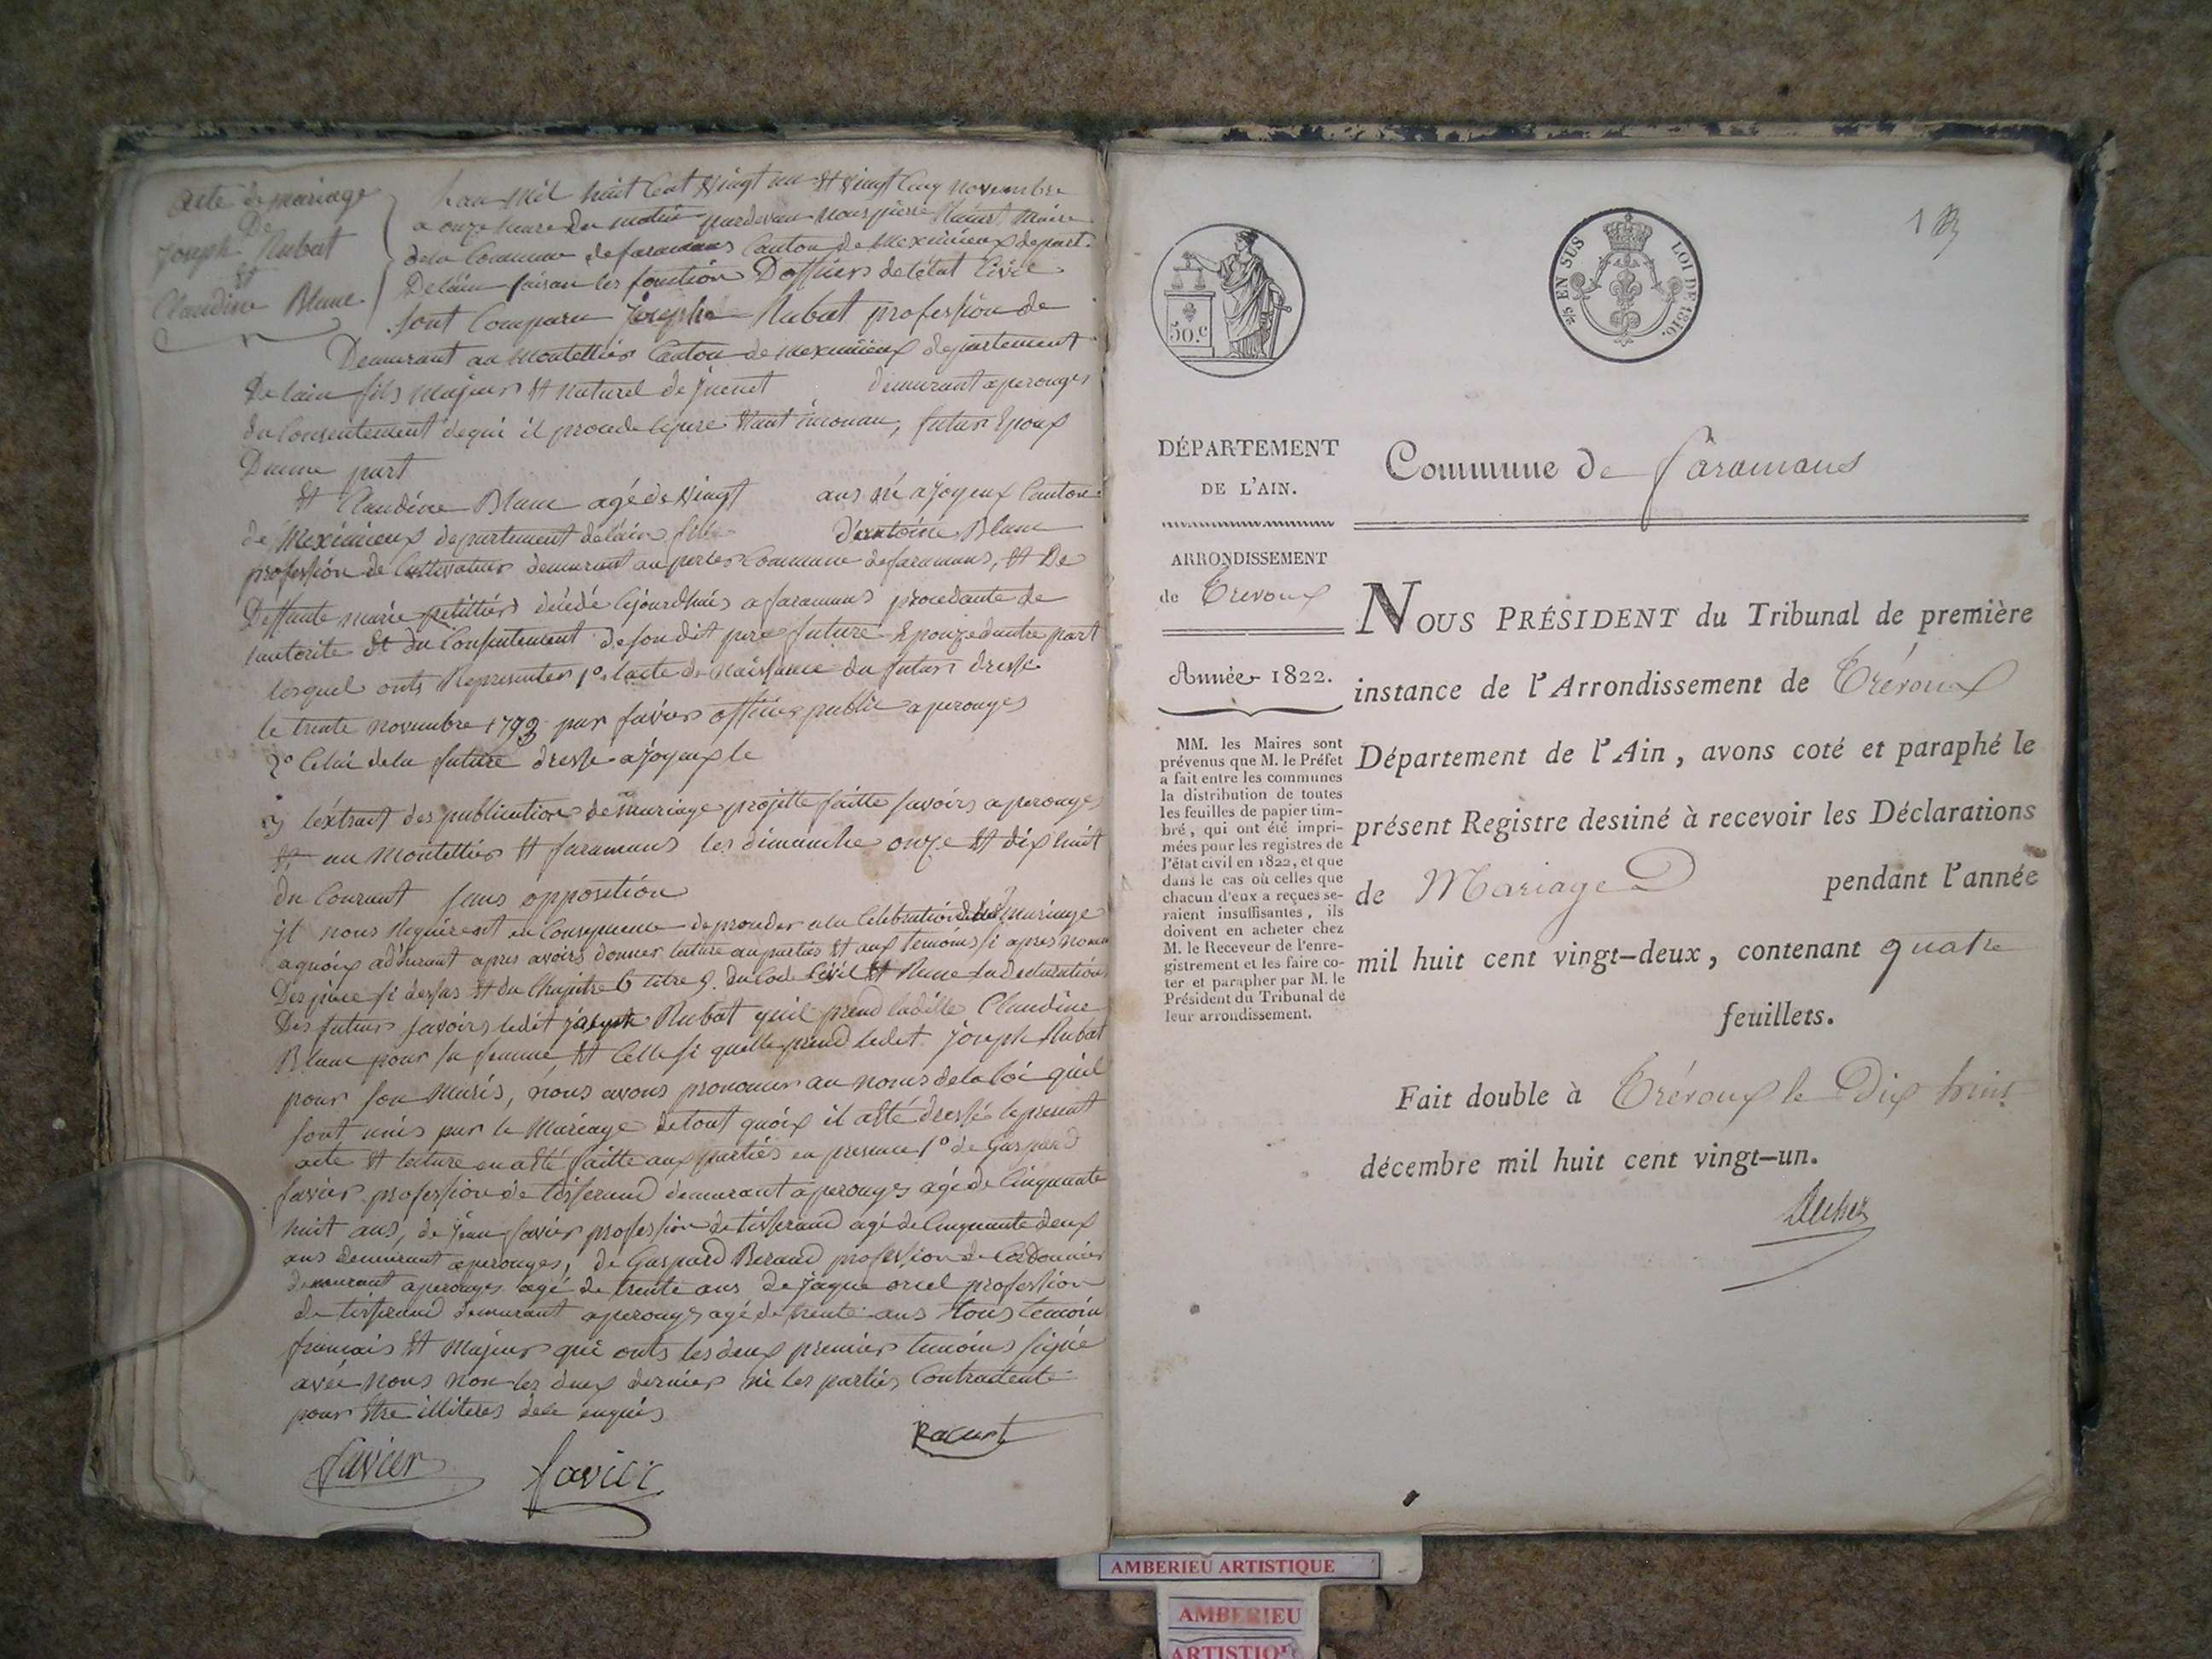 acte de mariage
De
Joseph Rubat
et
Claudine Blanc
Lan Mil huit Cent Vingt un et Vingt Cinq novembre
a onze heure du matin pardevan nous pierre Racurt Maire
dela Commune de faramans Canton de Meximieux depart.
Delain faisan les fonction Dofficiers deletat Civil
sont Comparu Joseph Rubat profession de
Demurant au Montellier Canton de Meximieux departement
De lain fils Majeur et naturel de demurant a perouges
du Consentement dequi il procede lepere etant inconnu, futur Epoux
Dunne part
et Claudine Blanc agé de Vingt ans né a Joyeux Canton
de Meximieux departement delain fille d'antoine Blanc
profession de Cultivateur demurant au perler Commune defaramans, et De
Deffunte marie petittier décédé a faramans procedante de
lautorite et du Consentement de son dit pere future Epouze dautre part
lesquel onts Representer 1º. lacte de Naissance du futur dressé
le trente novembre 1793 par favier officier public a perouges
2º Celui dela future dressé a Joyeux le
3 léxtrait des publication de mariage projetté faitte savoirs a perouges
et au Montellier et faramans les dimanche onze et dix huit
du Courant sans opposition
il nous Requirent en Consequence de proceder a la Celebration mariage
aquoix adhurant apres avoirs donner lecture au parties et aux temoins si apres nommé
Des piece si dessus et du Chapitre 6 titre 5. du Code Civil et Recue la declaration
Des futurs savoirs ledit Joseph Rubat quil prend laditte Claudine
Blanc pour sa femme, et Celle si quelle prend ledit Joseph Rubat
pour son Maris, nous avons prononcer au noms dela loi quil
sont unis par le Mariage detout quoix il a été dressé le present
acte et lecture en a été faitte aux parties en presence 1º de Gaspard
favier profession de tisserand demurant a perouges agé de Cinquante
huit ans, de Jean favier profession de tisserand agé de Cinquante deux
ans demurant a perouges, de Gaspard Beraud profession de Cordonnier
demurant a perouges agé de trente ans de Jaque orcel profession
de tisserand demurant a perouges agé de trente ans tous temoin
francais et Majeur qui onts les deux premier temoins signé
avec nous non les deux dernier ni les parties Contractente
pour etre illiteres dece enquis
favier favier Racurt
1
50.C
2/5 EN SUS LOI DE 1816.
DÉPARTEMENT
DE L'AIN.
ARRONDISSEMENT
de Trevoux
Année 1822.
MM. les Maires sont
prévenus que M. le Préfet
a fait entre les communes
la distribution de toutes
les feuilles de papier tim-
bré, qui ont été impri-
mées pour les registres de
l'état civil en 1822, et que
dans le cas où celles que
chacun d'eux a reçues se-
raient insuffisantes, ils
doivent en acheter chez
M. le Receveur de l'enre-
gistrement et les faire co-
ter et parapher par M. le
Président du Tribunal de
leur arrondissement.
Commune de faramans
NOUS PRÉSIDENT du Tribunal de première
instance de l'Arrondissement de Trévoux
Département de l'Ain, avons coté et paraphé le
présent Registre destiné à recevoir les Déclarations
de Mariage pendant l'année
mil huit cent vingt-deux, contenant quatre
feuillets.
Fait double à Trévoux le Dix huit
décembre mil huit cent vingt-un.
AMBERIEU ARTISTIQUE
AMBERIEU
ARTISTIQ